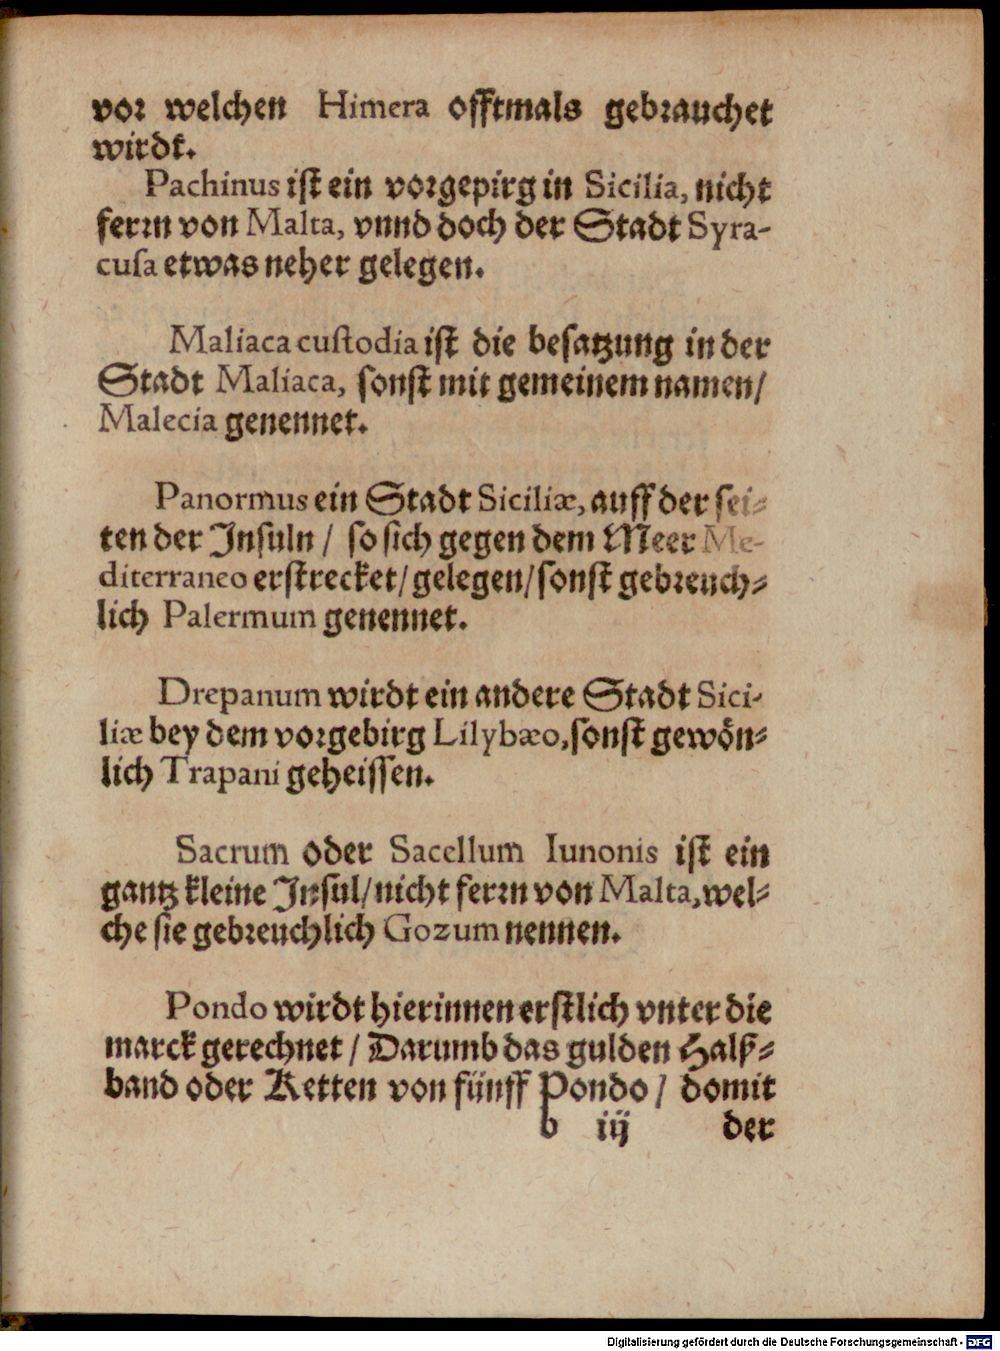 vor welchen Himera offtmals gebrauchet
wirdt.
Pachinus ist ein vorgepirg in Sicilia, nicht
ferrn von Malta, vnnd doch der Stadt Syra-
cusa etwas neher gelegen.
Maliaca custodia ist die besatzung in der
Stadt Maliaca, sonst mit gemeinem namen/
Malecia genennet.
Panormus ein Stadt Siciliæ, auff der sei-
ten der Insuln / so sich gegen dem Meer Me-
diterraneo erstrecket/ gelegen/ sonst gebreuch-
lich Palermum genennet.
Drepanum wirdt ein andere Stadt Sici-
liæ bey dem vorgebirg Lilybæo, sonst gewön-
lich Trapani geheissen.
Sacrum oder Sacellum Iunonis ist ein
gantz kleine Insul/ nicht ferrn von Malta, wel-
che sie gebreuchlich Gozum nennen.
Pondo wirdt hierinnen erstlich vnter die
marck gerechnet / Darumb das gulden Halß-
band oder Ketten von fünff Pondo / domit
b iij der
Digitalisierung gefördert durch die Deutsche Forschungsgemeinschaft - DFG